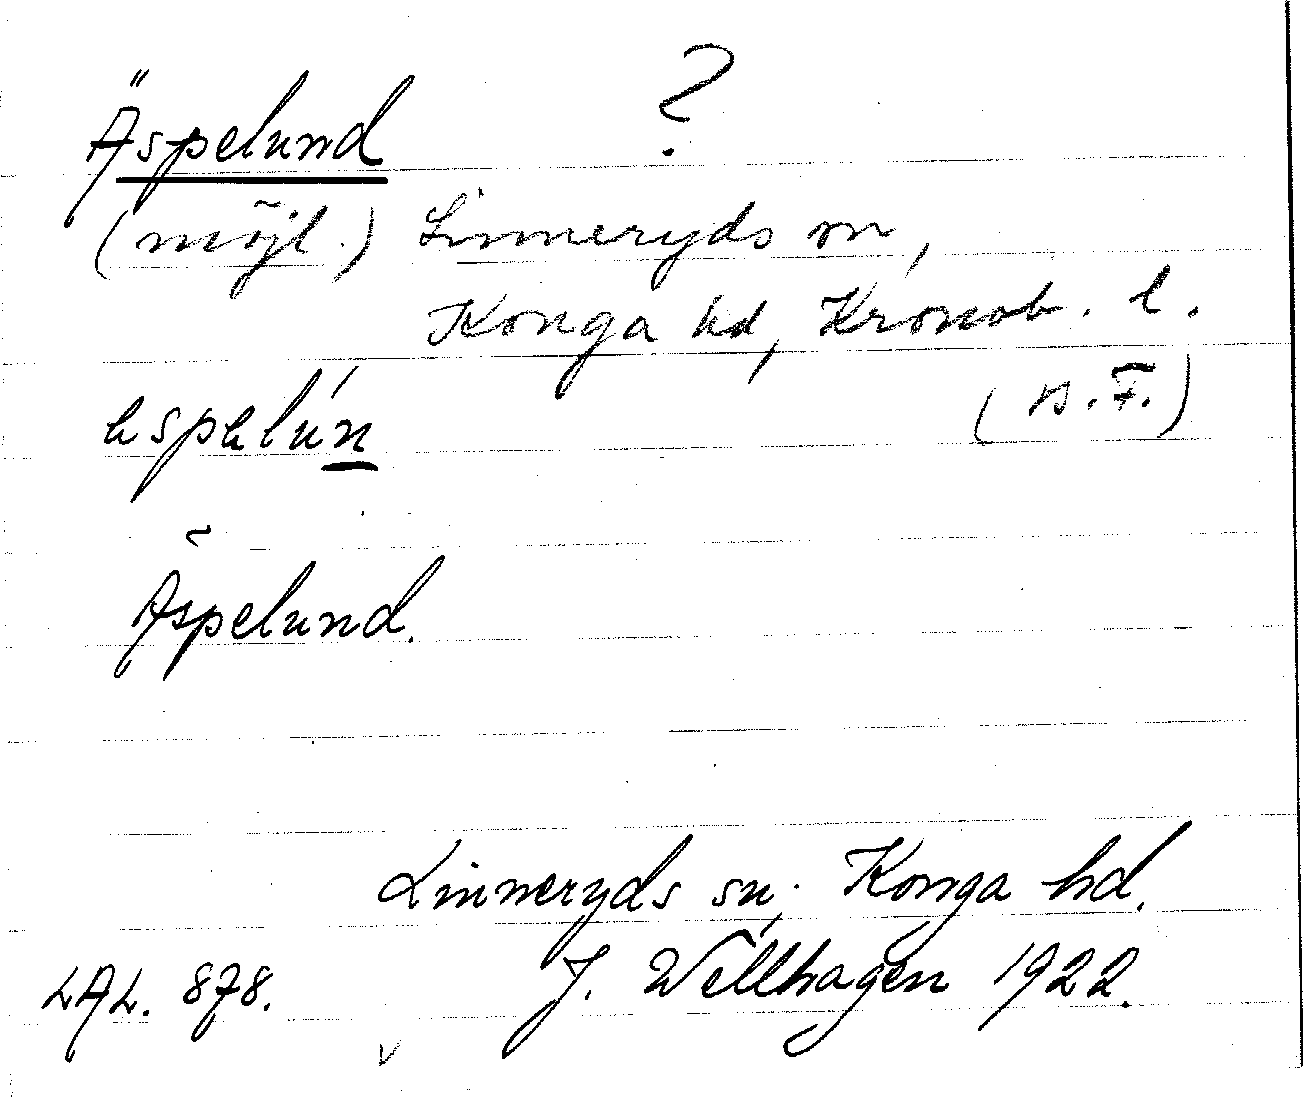 Äspelund ?
(möjl.) Linneryds sn,
Konga hd, Kronob. l.
(s.F.)
espelún
Äspelund.
Linneryds sn. Konga hd.
LAL. 878. J. Wellhagen 1922.